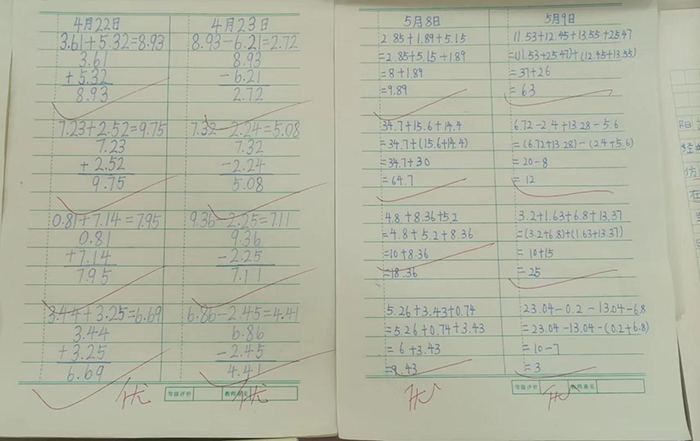 4月22日
3.61+5.32=8.93
3.61
+5.32
8.93
7.23+2.52=9.75
7.23
+2.52
9.75
0.81+7.14=7.95
0.81
+7.14
7.95
3.44+3.25=6.69
3.44
+3.25
6.69
优
4月23日
8.93-6.21=2.72
8.93
-6.21
2.72
7.32-2.24=5.08
7.32
-2.24
5.08
9.36-2.25=7.11
9.36
-2.25
7.11
6.86-2.45=4.41
6.86
-2.45
4.41
优
等级评价
5月8日
2.85+1.89+5.15
=2.85+5.15+1.89
=8+1.89
=9.89
34.7+15.6+14.4
=34.7+(15.6+14.4)
=34.7+30
=64.7
4.8+8.36+5.2
=4.8+5.2+8.36
=10+8.36
=18.36
5.26+3.43+0.74
=5.26+0.74+3.43
=6+3.43
=9.43
优
5月9日
11.53+12.45+13.55+25.47
=(11.53+25.47)+(12.45+13.55)
=37+26
=63
6.72-2.4+13.28-5.6
=(6.72+13.28)-(2.4+5.6)
=20-8
=12
3.2+1.63+6.8+13.37
=(3.2+6.8)+(1.63+13.37)
=10+15
=25
23.04-0.2-13.04-6.8
=23.04-13.04-(0.2+6.8)
=10-7
=3
优
等级评价